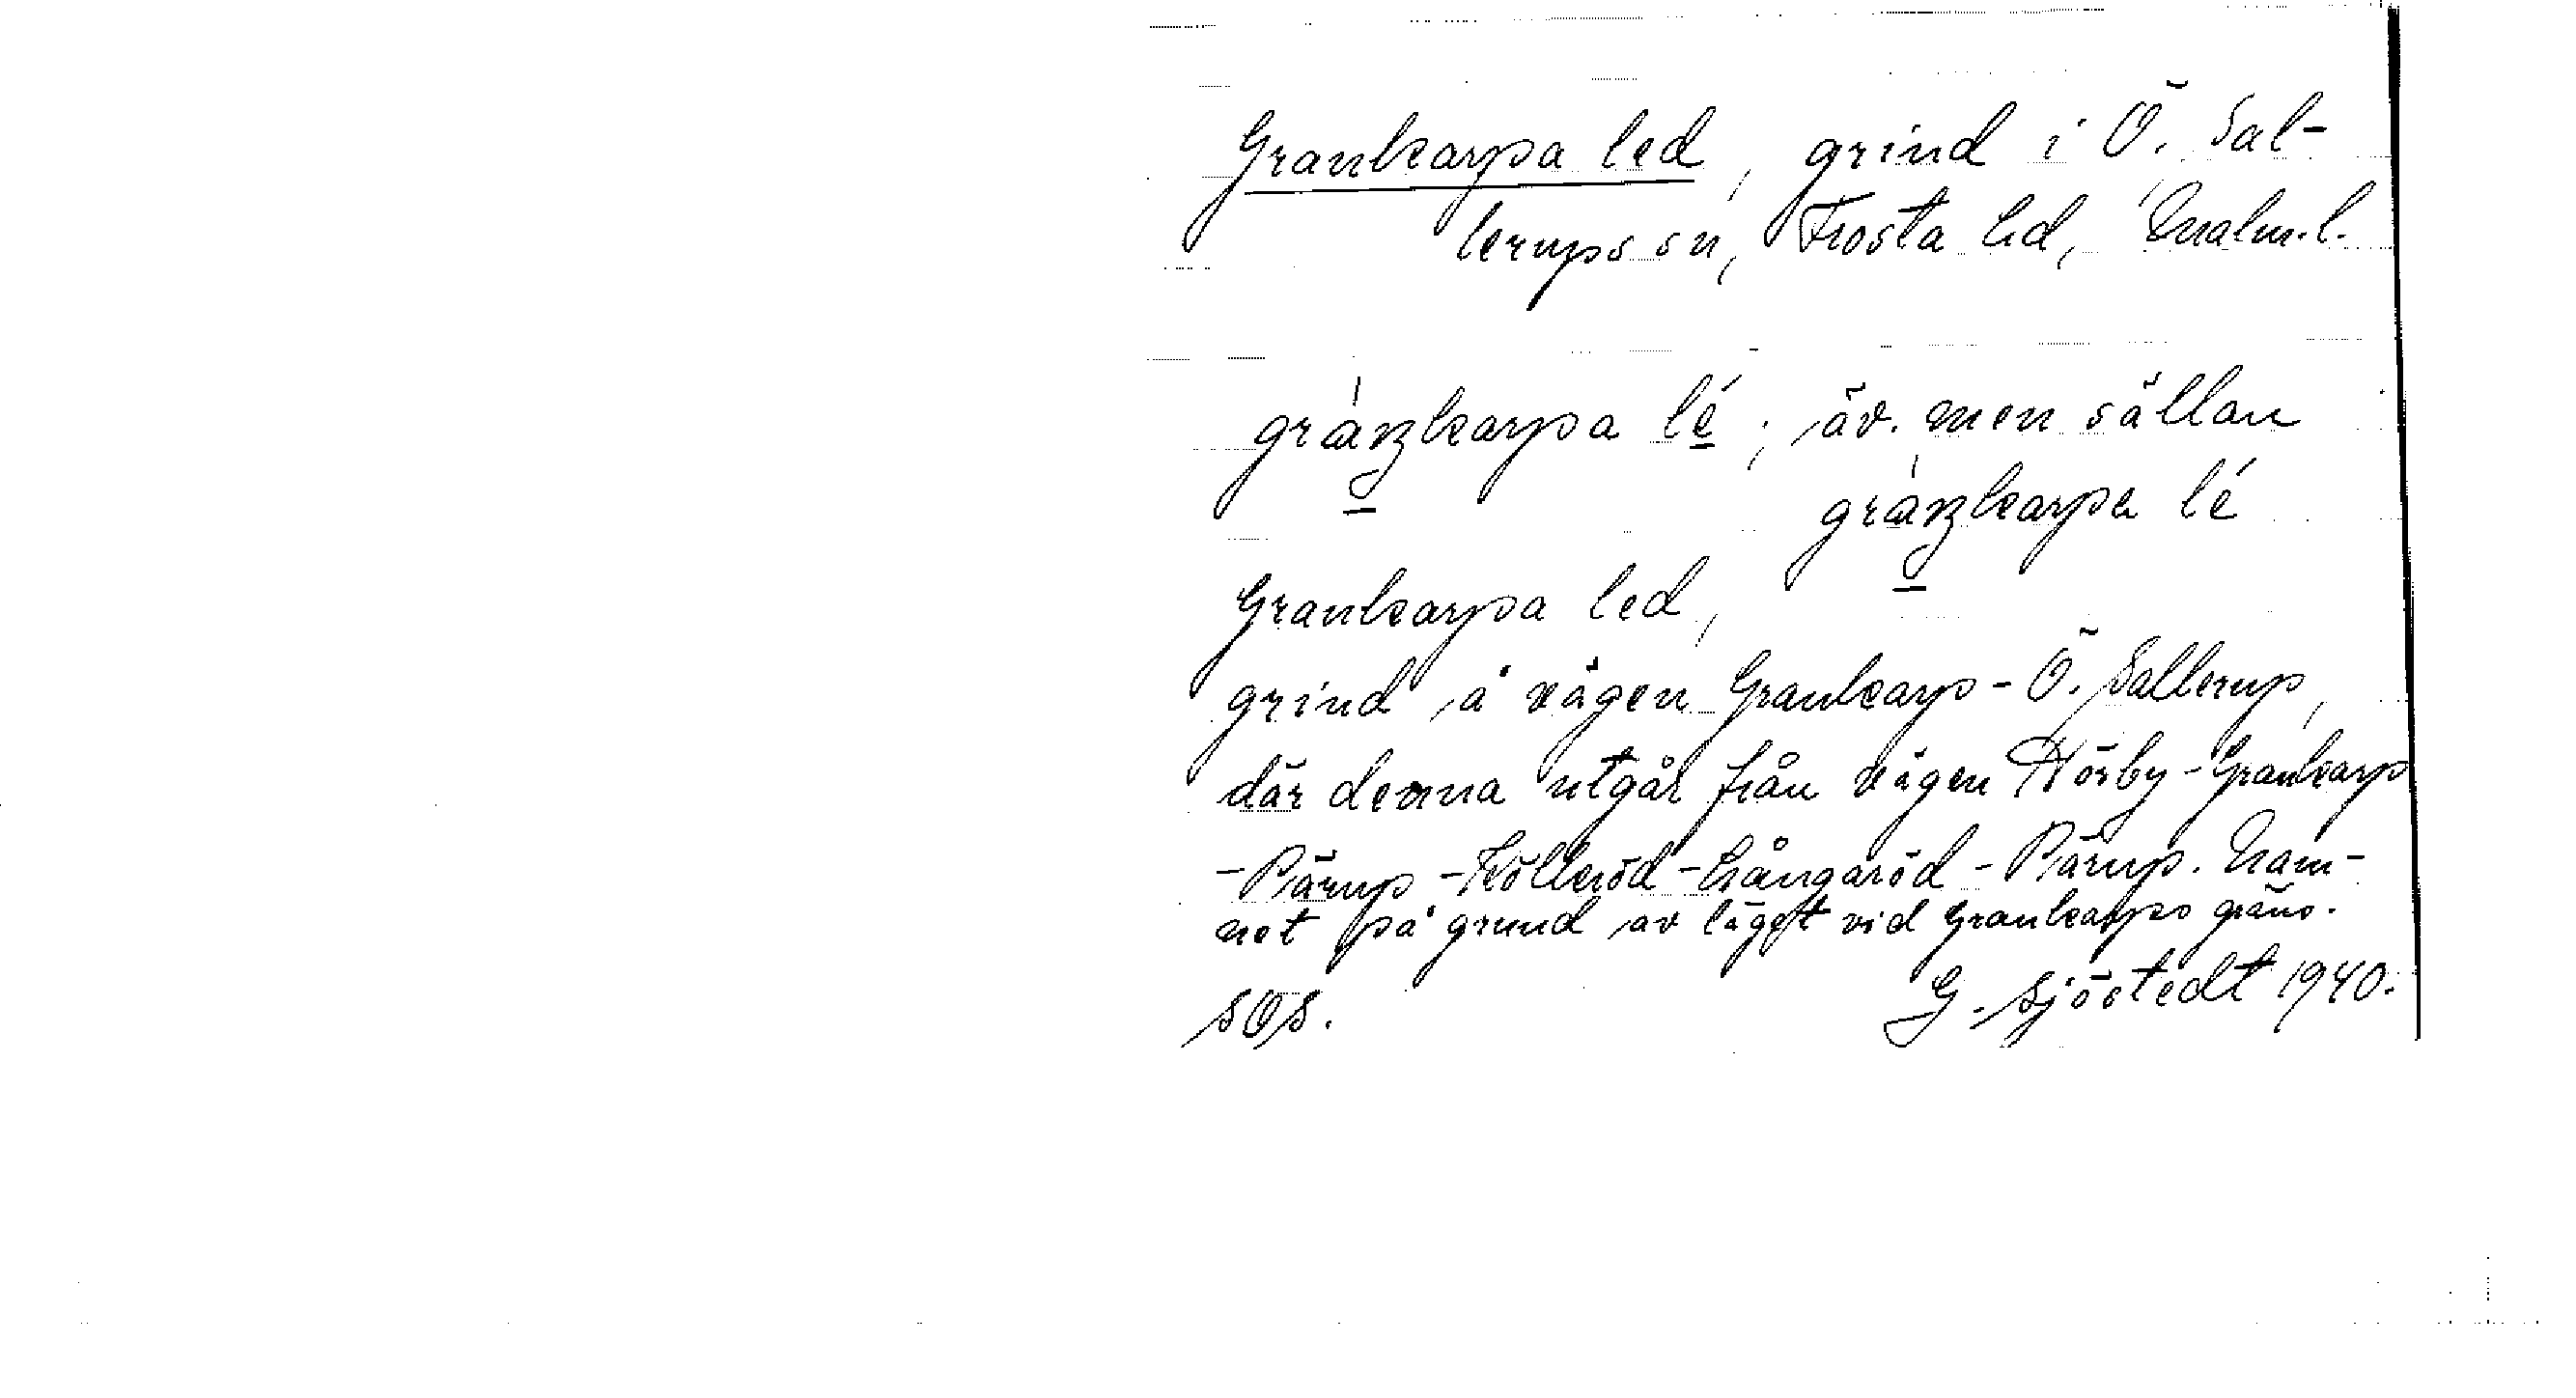 Grankarpa led, grind i Ö. Sal-
lerups sn, Frosta hd, Malm.l.
gráŋkarpa lé; äv. men sällan
gráŋkarpa lé
Grankarpa led,
grind å vägen Grankarp - Ö. Sallerup,
där denna utgår från vägen Hörby - Grankarp
- Pärup - Kölleröd - Långaröd - Pärup. Nam-
net på grund av läget vid Grankarps gräns.
SOS. G. Sjöstedt 1940.